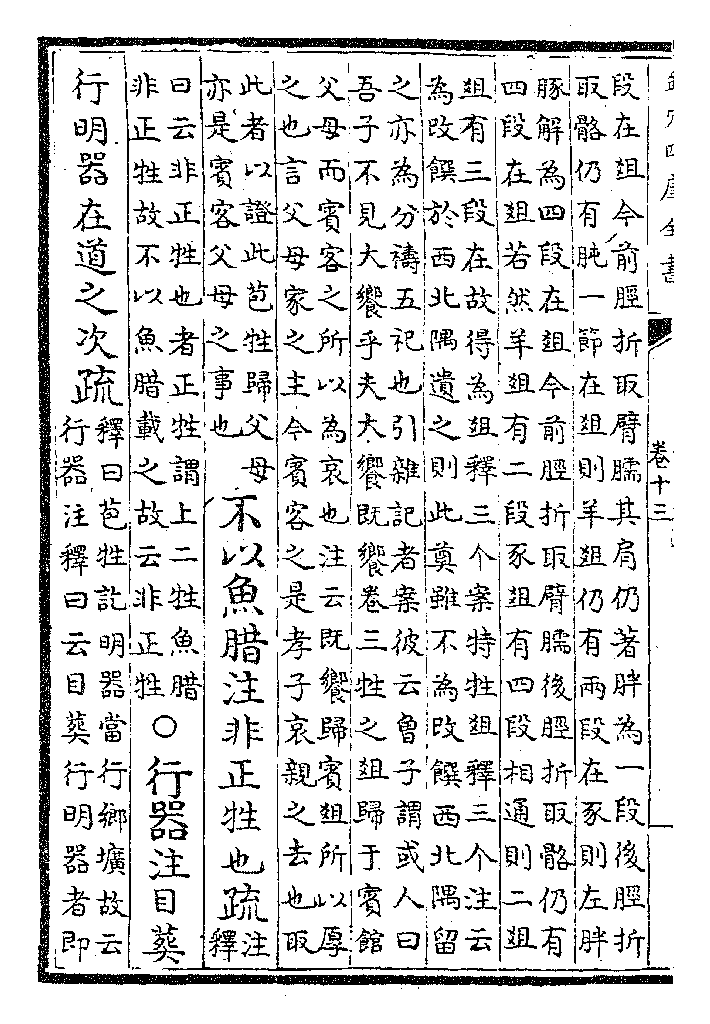 欽定四庫全書
卷十三
段在俎今前脛折取臂臑其肩仍著胖為一段後脛折
取骼仍有肫一節在俎則羊俎仍有兩段在豕則左胖
豚解為四段在俎今前脛折取臂臑後脛折取骼仍有
四段在俎若然羊俎有二段豕俎有四段相通則二俎
俎有三段在故得為俎釋三个案特牲俎釋三个注云
為改饌於西北隅遺之則此奠雖不為改饌西北隅留
之亦為分禱五祀也引雜記者案彼云曾子謂或人曰
吾子不見大饗乎夫大饗既饗卷三牲之俎歸于賓館
父母而賓客之所以為哀也注云既饗歸賓俎所以厚
之也言父母家之主今賓客之是孝子哀親之去也取
此者以證此苞牲歸父母
亦是賓客父母之事也
不以魚腊注非正牲也疏
注
釋
曰云非正牲也者正牲謂上二牲魚腊
非正牲故不以魚腊載之故云非正牲
○行器注目葬
行明器在道之次疏
釋曰苞牲訖明器當行鄉壙故云
行器注釋曰云目葬行明器者即